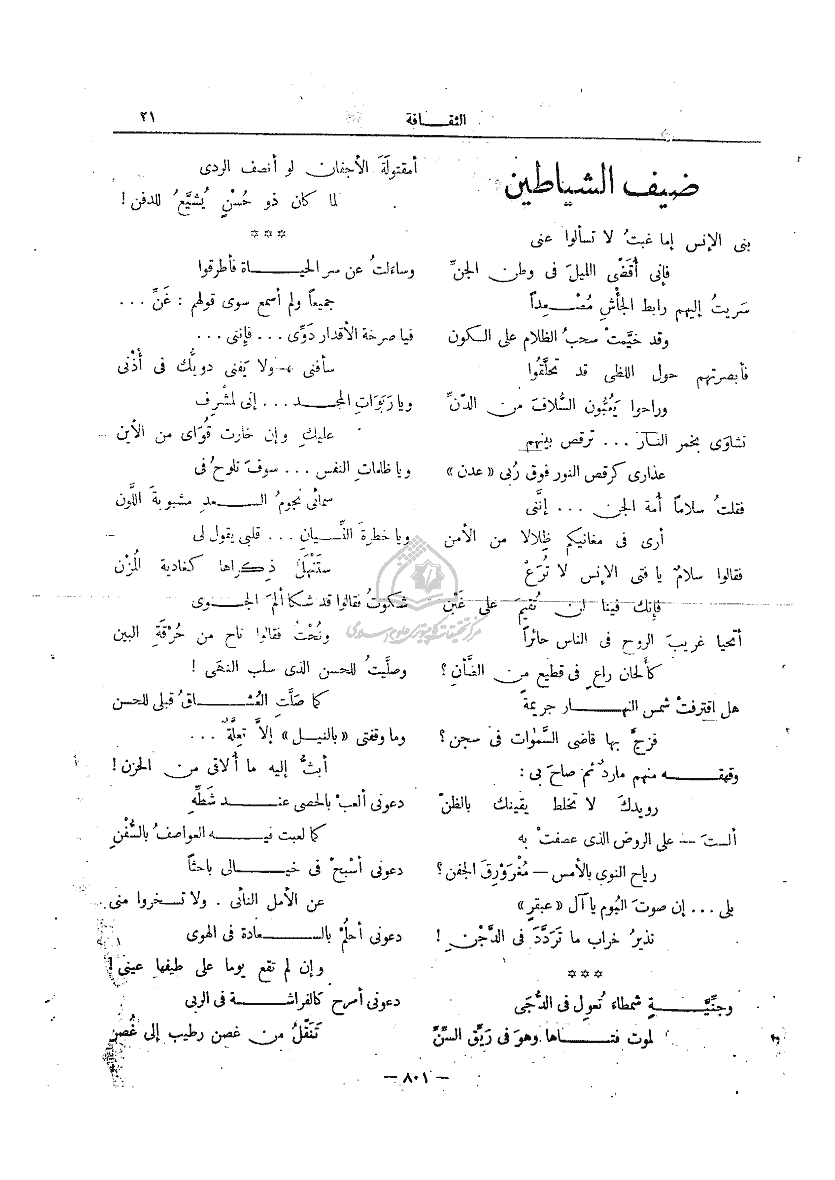 الثقـافة
٢١
ضيف الشياطين
بنى الإنس إما غبتُ لا تسألوا عنى
فإنى أُقَضِّى الليلَ فى وطن الجنِّ
سَريتُ إليهم رابط الجَأْشِ مُصْعِداً
وقد خيَّمتْ سحبُ الظلام على الكون
فأبصرتهم حول اللظى قد تحلَّقُوا
وراحوا يَعُبُّون السُّلافَ من الدّنِّ
نشاوَى بخمر النـار ... ترقص بينهم
عذارى كرقص النور فوق رُبى «عدن»
فقلتُ سلاماً أمة الجن ... إنَّنى
أرى فى مغانيكم ظِلالا من الأمن
فقالوا سلامٌ يا فتى الإنس لا تُرَعْ
فإنك فينا لن تُقيمَ على غَبْن
أتحيا غريبَ الروح فى الناس حائراً
كألحان راعٍ فى قطيع من الضَّأنِ ؟
هل اقترفتْ شمس النهـار جريمةً
فزجَّ بها قاضى السَّموات فى سجن ؟
وقهقـه منهم ماردٌ ثم صاحَ بى :
رويدكَ لا تخلط يقينك بالظنّ
ألستَ — على الروض الذى عصفتْ به
رياح النوى بالأمس — مُغْرَوْرِقَ الجفن ؟
بلى ... إن صوتَ البُوم يا آل «عبقر»
نذيرُ خراب ما تَرَدَّدَ فى الدَّجْنِ !
***
وجنِّيَّـةٍ شمطاء تُعول فى الدُّجَى
لموت فتـاها وهو فى رَيِّق السنِّ
أمقتولَةَ الأجفان لو أنصف الردى
لما كان ذو حُسْنٍ يُشيَّعُ للدفن !
***
وساءلتُ عن سر الحيـاة فأطرقوا
جميعاً ولم أسمع سوى قولهم : غَنِّ ...
فيا صرخة الأقدار دَوِّى ... فإننى ...
سأفنى — ولا يَفنى دويُّك فى أُذْنى
ويا رَبَوَاتِ المجـد ... إنى لمشْرِف
عليكِ وإن خارت قُوَاى من الأين
ويا ظلمات النفس ... سوفَ تلوحُ فى
سمائى نجومُ السـعد مشبوبةَ اللَّون
ويا خطرةَ النِّسـيانِ ... قلبى يقول لى
ستَنهلُّ ذِكراها كغادية المُزْن
شكوتُ فقالوا قد شكا ألمَ الجـوى
ونُحْتُ فقالوا ناح من حُرْقةِ البين
وصلَّيتُ للحسن الذى سلب النهى !
كما صَلَّتِ العُشـاقُ قبلى للحسن
وما وقفتى «بالنيل» إلاَّ تعِلَّةٌ ...
أبثُّ إليه ما أُلاقى من الحزن !
دعونى ألعبْ بالحصى عنـد شَطِّهِ
كما لعبت فيـه العواصفُ بالسُّفْنِ
دعونى أسْبحْ فى خيـالى باحثًا
عن الأمل النائى . ولا تسخروا منى
دعونى أحلُمْ بالسـعادة فى الهوى
وإن لم تقع يوما على طيفها عينى !
دعونى أمرح كالفراشـة فى الربى
تَنَقَّلُ من غصن رطيب إلى غُصن
— ٨٠١ —
مركز تحقيقات كامپيوترى علوم اسلامى